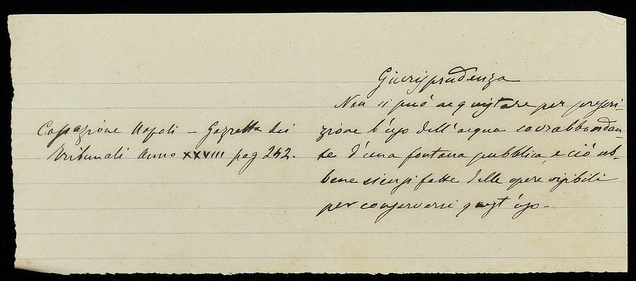 Giurisprudenza
Cassazione Napoli – Gazzetta dei
Tribunali Anno XXVIII pag 242.
Non si può acquistare per prescri-
zione l'uso dell'acqua sovrabbondan-
te d'una fontana pubblica e ciò ub-
bene siensi fatte delle opere visibili
per conservarsi quest'uso.